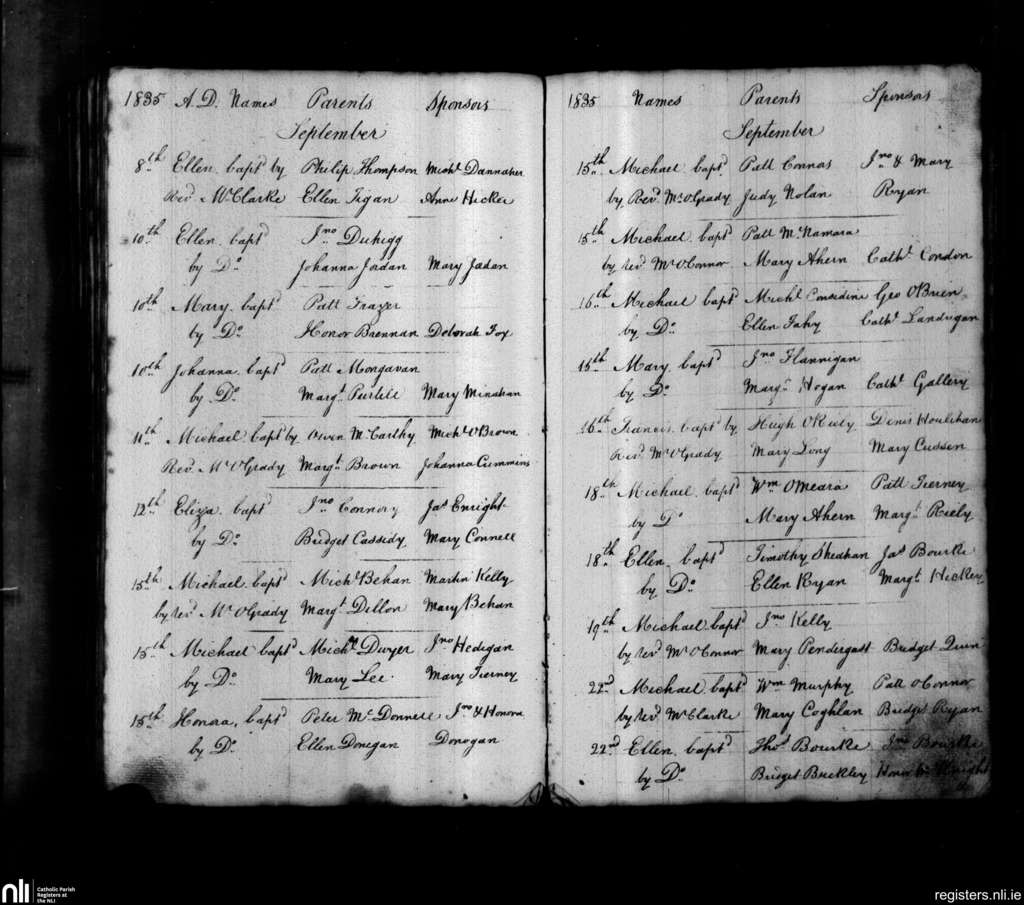 1835 A. D. Names Parents Sponsors
September
8th Ellen bapt by Philip Thompson Michl Dannaher
Revd Mr Clarke Ellen Tigan Anne Hickie
10th Ellen baptd Jno Duhigg
by Do Johanna Jordan Mary Jadan
10th Mary baptd Patt Frazer
by Do Honor Brennan Deborah Fox
10th Johanna baptd Patt Mongavan
by Do Margt Purtill Mary Minahan
11th Michael bapt by Owen McCarthy Michl OBrown
Revd Mr OGrady Margt Brown Johanna Cummins
12th Eliza baptd Jno Connory Jas Enright
by Do Bridget Cassidy Mary Connell
15th Michael baptd Michl Behan Martin Kelly
by revd Mr OGrady Margt Dillon Mary Behan
15th Michael baptd Michl Dwyer Jno Hedigan
by Do Mary Lee Mary Tierney
15th Honora baptd Peter McDonnell Jno & Honora
by Do Ellen Donegan Donogan
1835 Names Parents Sponsors
September
15th Michael baptd Patt Connas Jno & Mary
by Revd Mr OGrady Judy Nolan Ryan
15th Michael baptd Patt McNamara
by revd Mr OConnor Mary Ahern Cathe Condon
16th Michael baptd Michl Considine Geo OBrien
by Do Ellen Fahy Cathe Landrigan
15th Mary baptd Jno Flannigan
by Do Margt Hogan Cathe Gallery
16th Francis bapt by Hugh ORiely Denis Houlihan
Revd Mr OGrady Mary Long Mary Cussen
18th Michael baptd Wm OMeara Patt Tierney
by Do Mary Ahern Margt Riely
18th Ellen baptd Timothy Sheahan Jas Bourke
by Do Ellen Ryan Margt Hickey
19th Michael baptd Jno Kelly
by revd Mr OConnor Mary Pendergast Bridget Quin
22nd Michael baptd Wm Murphy Patt OConnor
by revd Mr Clarke Mary Coghlan Bridget Ryan
22nd Ellen baptd Thos Bourke Jno Bourke
by Do Bridget Buckley Honor
nli Catholic Parish
Registers at
the NLI
registers.nli.ie